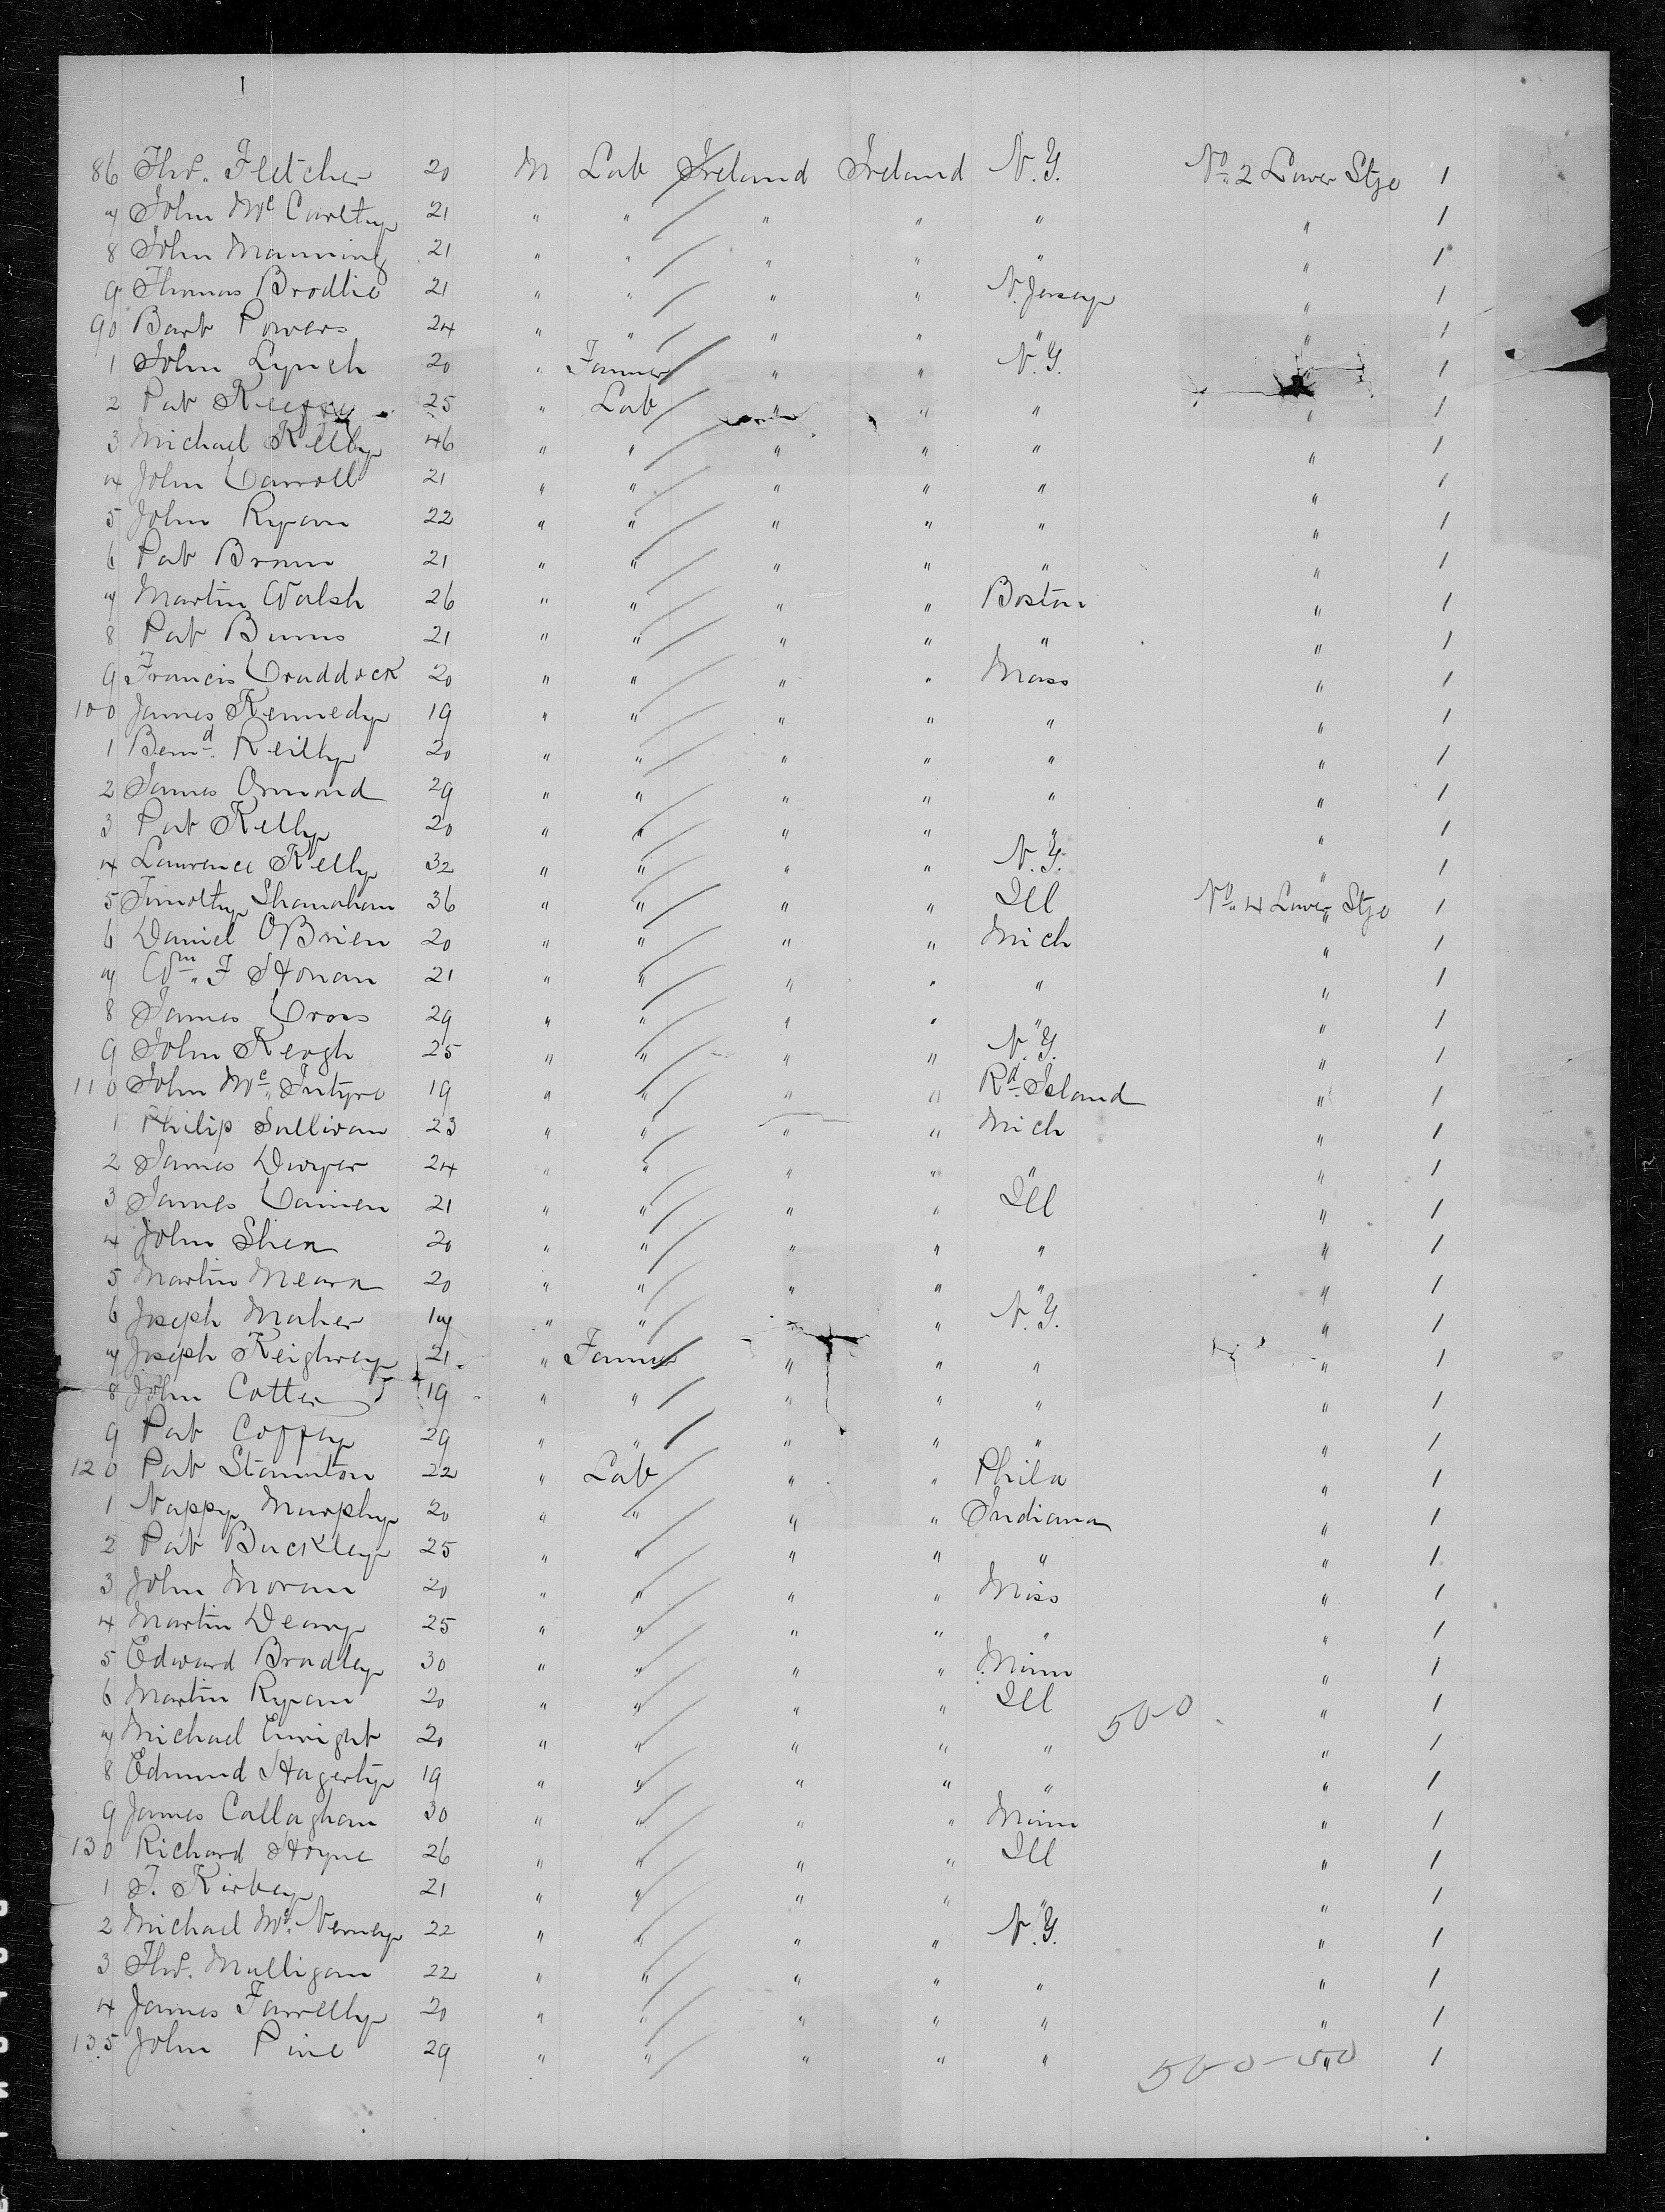 86 Tho.s Fletcher 20 M Lab Ireland Ireland N.Y. No. 2 Lower Stge 1
7 John Mc Carthy 21 " " " " " " 1
8 John Manning 21 " " " " " " 1
9 Thomas Brodlie 21 " " " " N. Jersey " 1
90 Bart Powers 24 " " " " " " 1
1 John Lynch 20 " Farmer " " N.Y. 1
2 Pat Keeffe 25 " Lab " " " " 1
3 Michael Kelly 46 " " " " " " 1
4 John Carroll 21 " " " " " " 1
5 John Ryan 22 " " " " " " 1
6 Pat Brown 21 " " " " " " 1
7 Martin Walsh 26 " " " " Boston " 1
8 Pat Burns 21 " " " " " " 1
9 Francis Craddock 20 " " " " Mass " 1
100 James Kennedy 19 " " " " " " 1
1 Bernd. Reilly 20 " " " " " " 1
2 James Ormond 29 " " " " " " 1
3 Pat Kelly 20 " " " " " " 1
4 Lawrence Kelly 32 " " " " N.Y. " 1
5 Timothy Shanahan 36 " " " " Ill No. 4 Lower Stge " 1
6 Daniel OBrien 20 " " " " Mich " 1
7 Wm. F Honan 21 " " " " " " 1
8 James Cross 29 " " " " " " 1
9 John Keogh 25 " " " " N.Y. " 1
110 John Mc Intyre 19 " " " " Rd. Island " 1
1 Philip Sullivan 23 " " " " Mich " 1
2 James Dwyer 24 " " " " " " 1
3 James Camien 21 " " " " Ill " 1
4 John Shea 20 " " " " " " 1
5 Martin Meara 20 " " " " " " 1
6 Joseph Maher 17 " " " " N.Y. " 1
7 Joseph Keighrey 21 " Farmer " " " " 1
8 John Cotter 19 " " " " " " 1
9 Pat Coffay 29 " " " " " " 1
120 Pat Staunton 22 " Lab " " Phila " 1
1 Nappy Murphy 20 " " " " Indiana " 1
2 Pat Buckley 25 " " " " " " 1
3 John Moran 20 " " " " Miss " 1
4 Martin Deany 25 " " " " " " 1
5 Edward Bradley 30 " " " " Minn " 1
6 Martin Ryan 20 " " " " Ill 500 " 1
7 Michael Enright 20 " " " " " " 1
8 Edmund Hagerty 19 " " " " " " 1
9 James Callaghan 30 " " " " Minn " 1
130 Richard Hoyne 26 " " " " Ill " 1
1 T. Kirbey 21 " " " " " " 1
2 Michael Mc. Nerney 22 " " " " N.Y. " 1
3 Tho.s Mulligan 22 " " " " " " 1
4 James Farrelly 20 " " " " " " 1
135 John Pine 29 " " " " " " 1